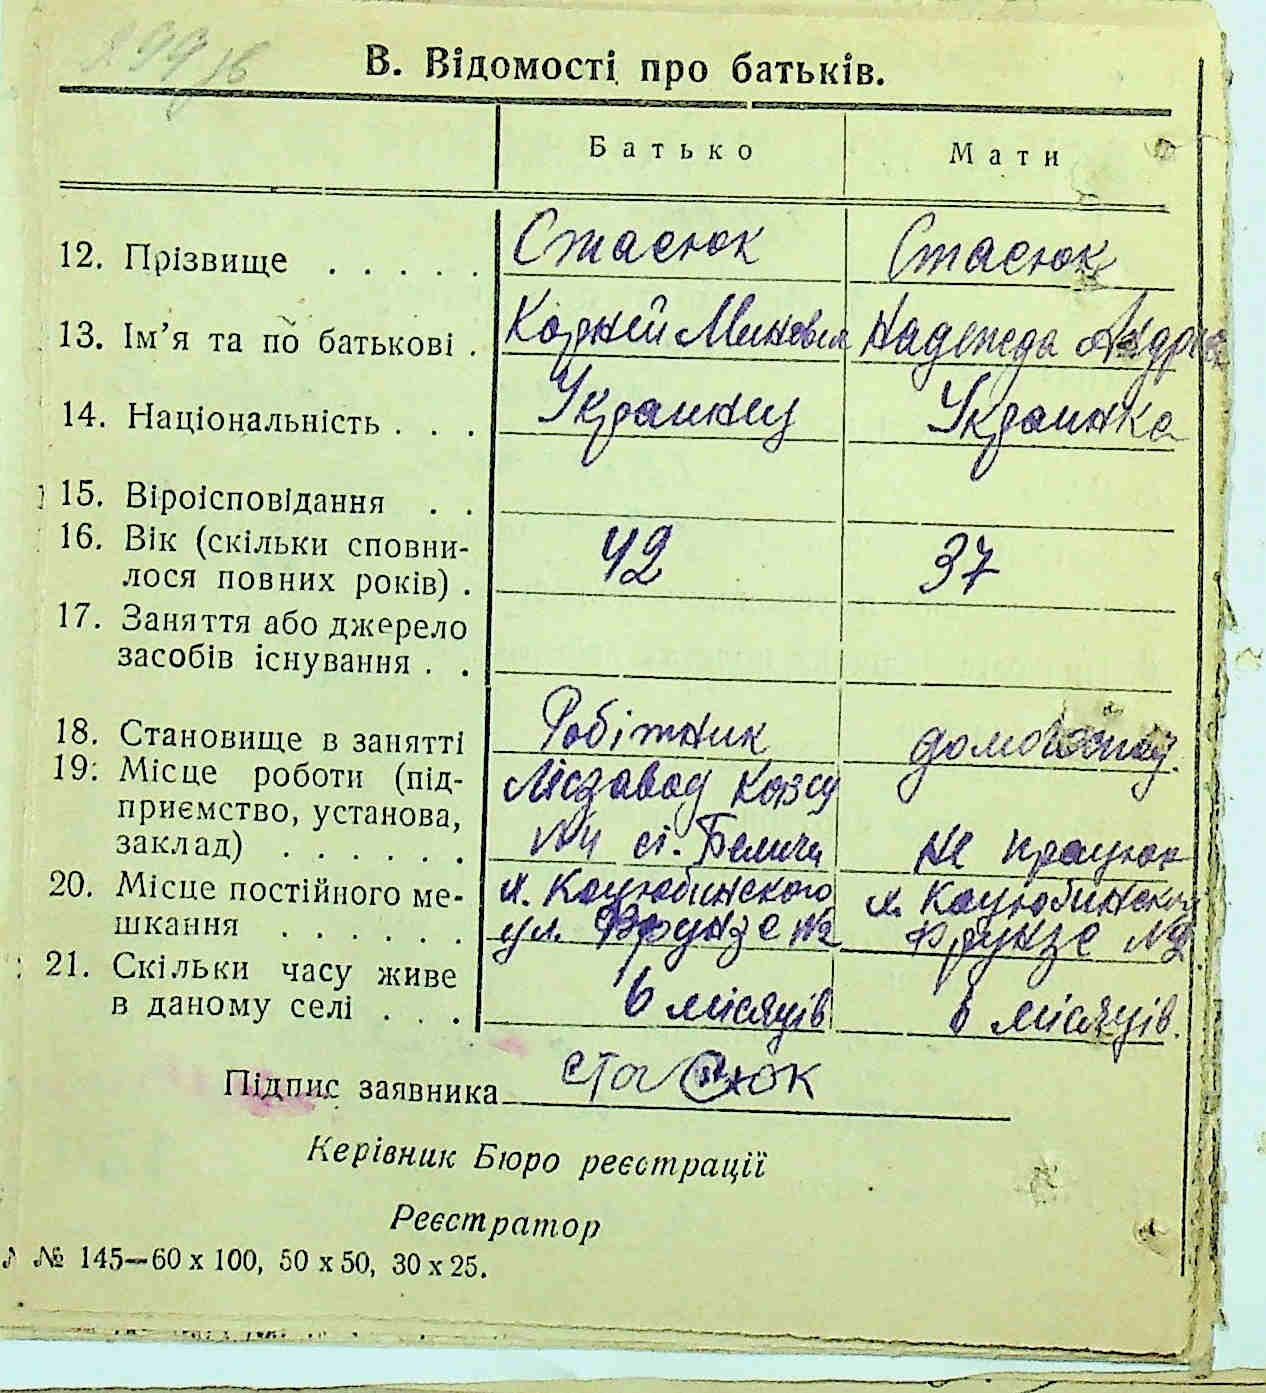 В. Відомості про батьків.
Батько Мати
12. Прізвище . . . . . Стасюк Стасюк
13. Ім’я та по батькові . Корней Надежда
14. Національність . . . Украинец Украинка
15. Віроісповідання . .
16. Вік (скільки сповни-
лося повних років) . 42 37
17. Заняття або джерело
засобів існування . .
18. Становище в занятті Робітник
19. Місце роботи (під- Лісзавод
приємство, установа,
заклад) . . . . . . №4 ст. Беличи не працює
20. Місце постійного ме- п. Коцюбинского п. Коцюбинского
шкання . . . . . . ул. Фрунзе №2 Фрунзе №2
21. Скільки часу живе
в даному селі . . . 6 місяців 6 місяців.
Підпис заявника Стасюк
Керівник Бюро реєстрації
Реєстратор
№ 145—60 х 100, 50 х 50, 30 х 25.